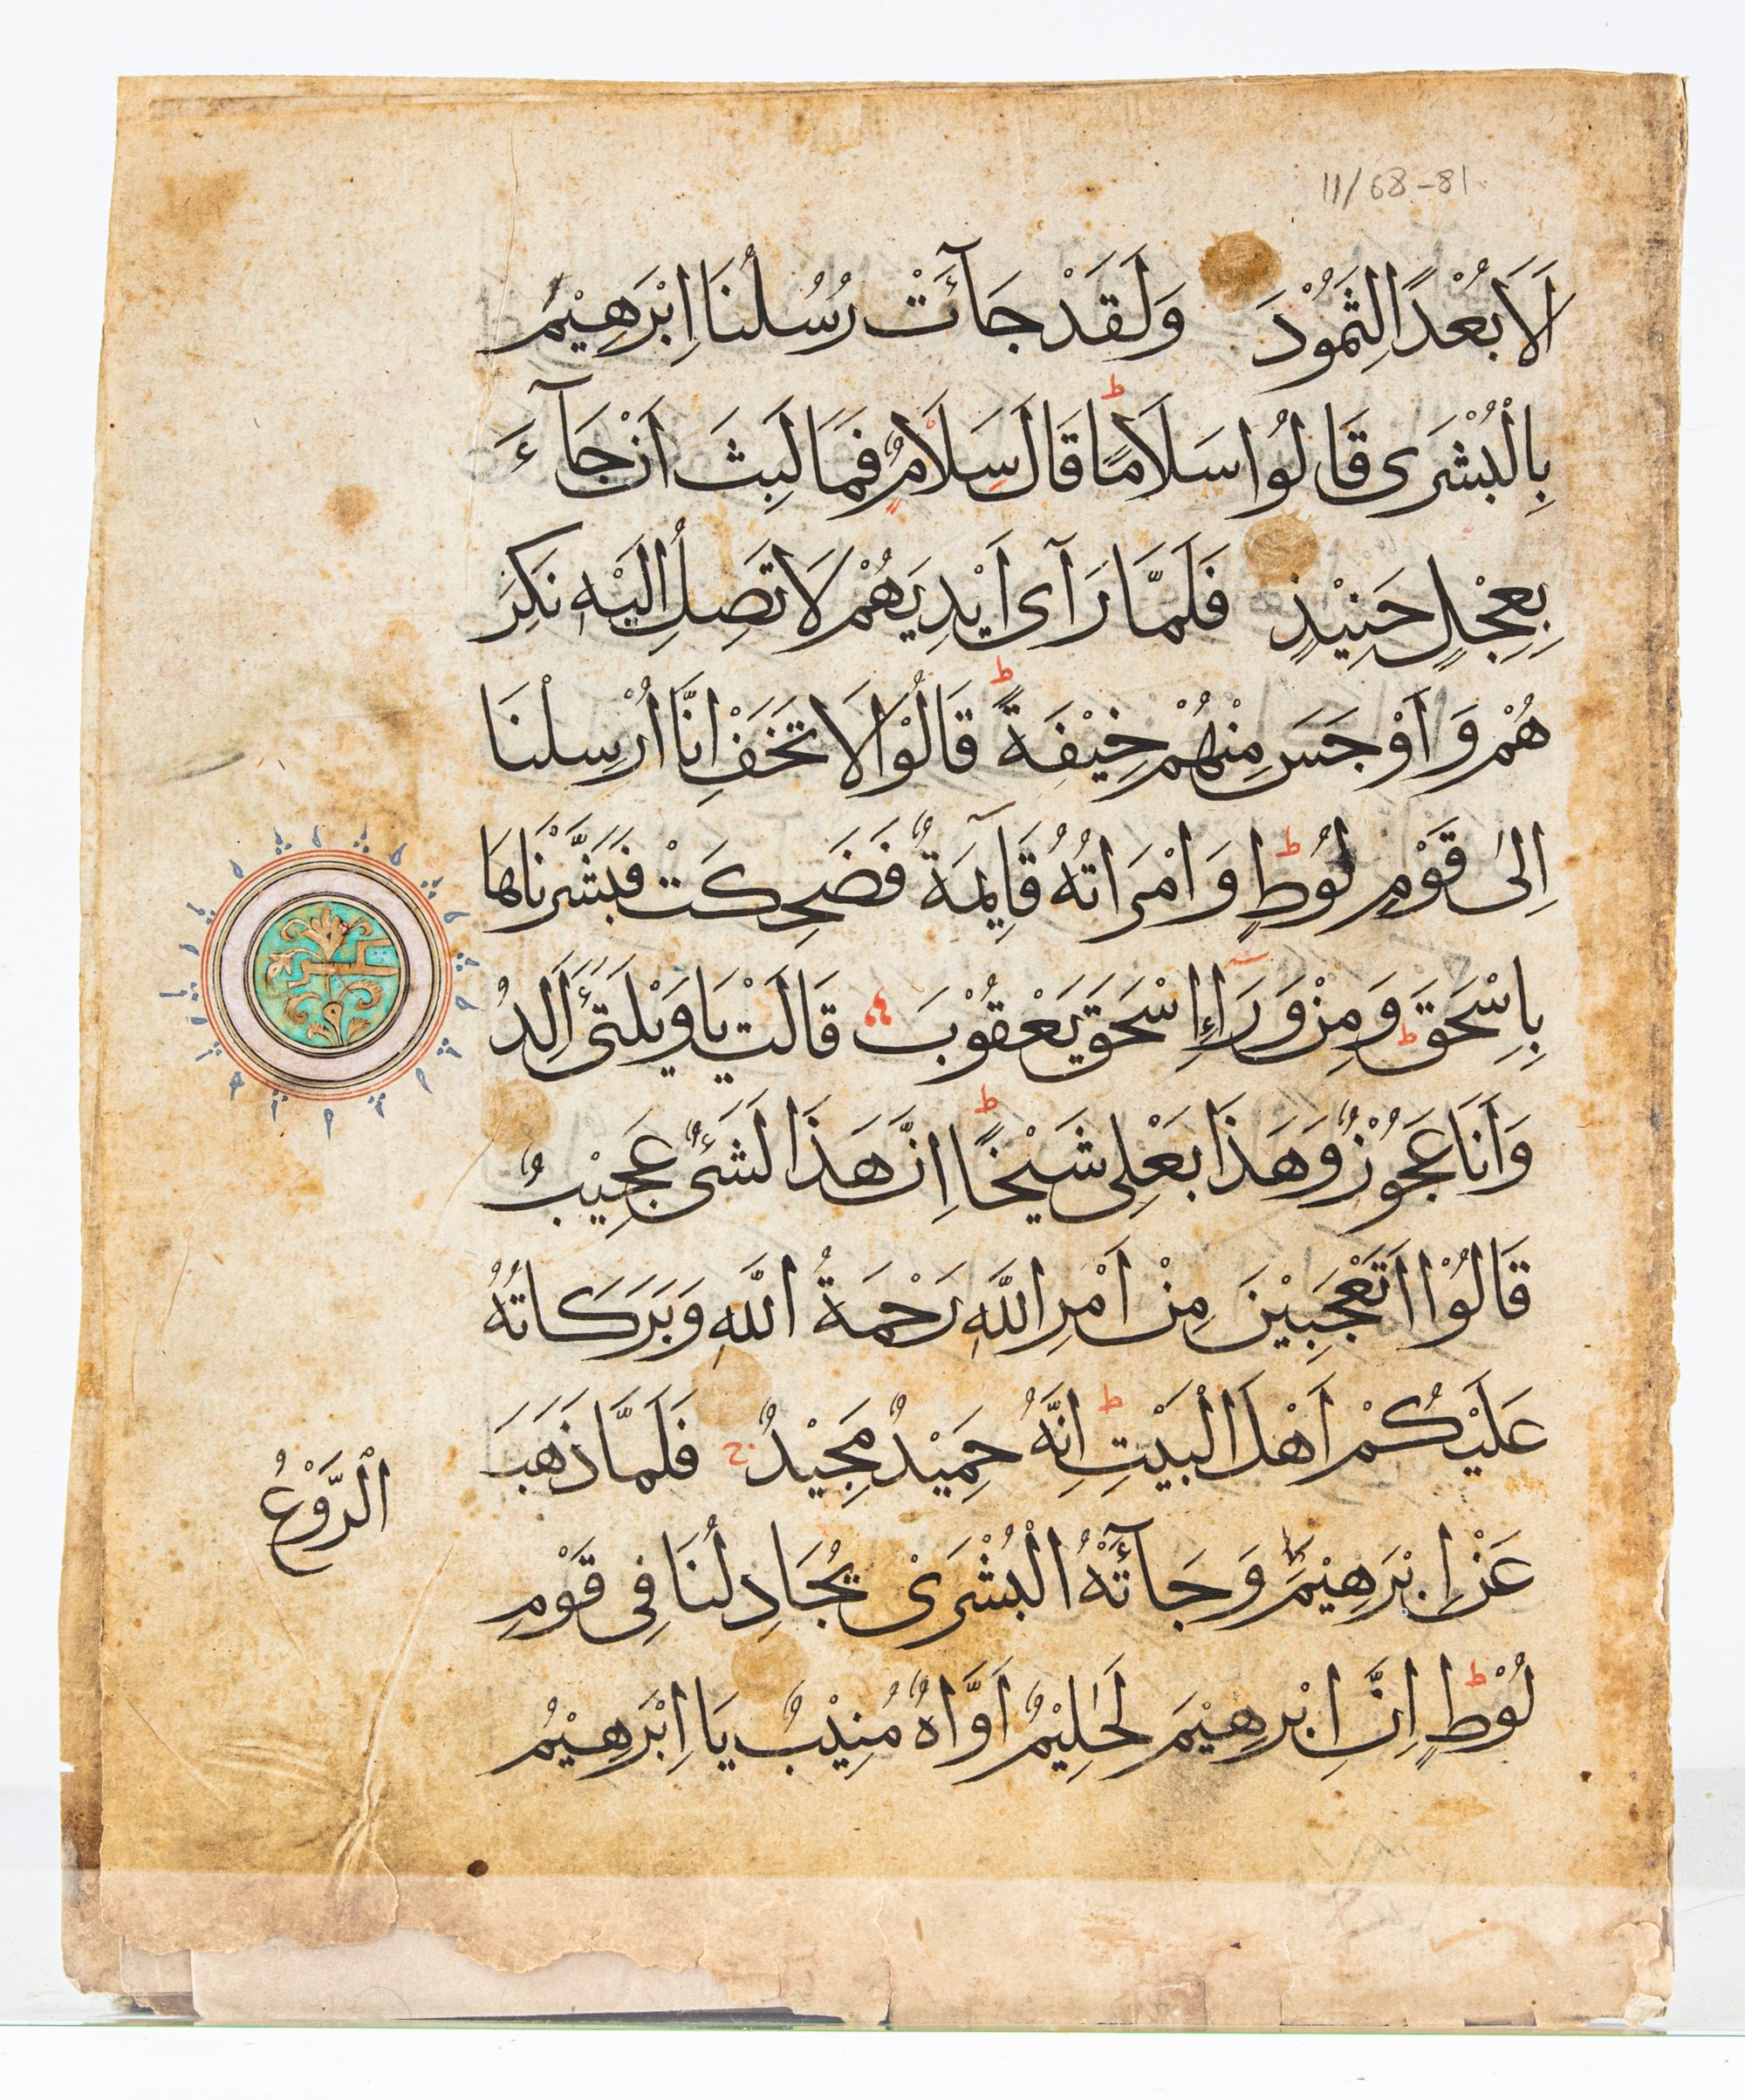 11/68-81
اَلَا بُعْدًا لِثَمُوْدَ وَلَقَدْ جَآئَتْ رُسُلُنَا اِبْرَهِيْمُ
بِالْبُشْرَى قَالُوا سَلَامًا ط قَالَ سَلَامٌ فَمَا لَبِثَ اَنْ جَآءَ
بِعِجْلٍ حَنِيْذٍ فَلَمَّا رَآى اَيْدِيَهُمْ لَا تَصِلُ اِلَيْهِ نَكِرَ
هُمْ وَاَوْجَسَ مِنْهُمْ خِيْفَةً ط قَالُوْا لَا تَخَفْ اِنَّا اُرْسِلْنَا
اِلَىٰ قَوْمِ لُوْطٍ ط وَامْرَاتُهُ قَآيِمَةٌ فَضَحِكَتْ فَبَشَّرْنَاهَا
بِاِسْحَقَ ط وَمِنْ وَرَآءِ اِسْحَقَ يَعْقُوْبَ قَالَتْ يَا وَيْلَتَىٰ ءَاَلِدُ
وَاَنَا عَجُوْزٌ وَهَذَا بَعْلِى شَيْخًا ط اِنَّ هَذَا لَشَىْءٌ عَجِيْبٌ
قَالُوْا اَتَعْجَبِيْنَ مِنْ اَمْرِ اللَّهِ رَحْمَةُ اللَّهِ وَبَرَكَاتُهُ
عَلَيْكُمْ اَهْلَ الْبَيْتِ ط اِنَّهُ حَمِيْدٌ مَجِيْدٌ فَلَمَّا ذَهَبَ
الرَّوْعُ
عَنْ اِبْرَهِيْمَ وَجَآئَتْهُ الْبُشْرَىْ يُجَادِلُنَا فِى قَوْمِ
لُوْطٍ ط اِنَّ اِبْرَهِيْمَ لَحَلِيْمٌ اَوَّاهٌ مُنِيْبٌ يَا اِبْرَهِيْمُ